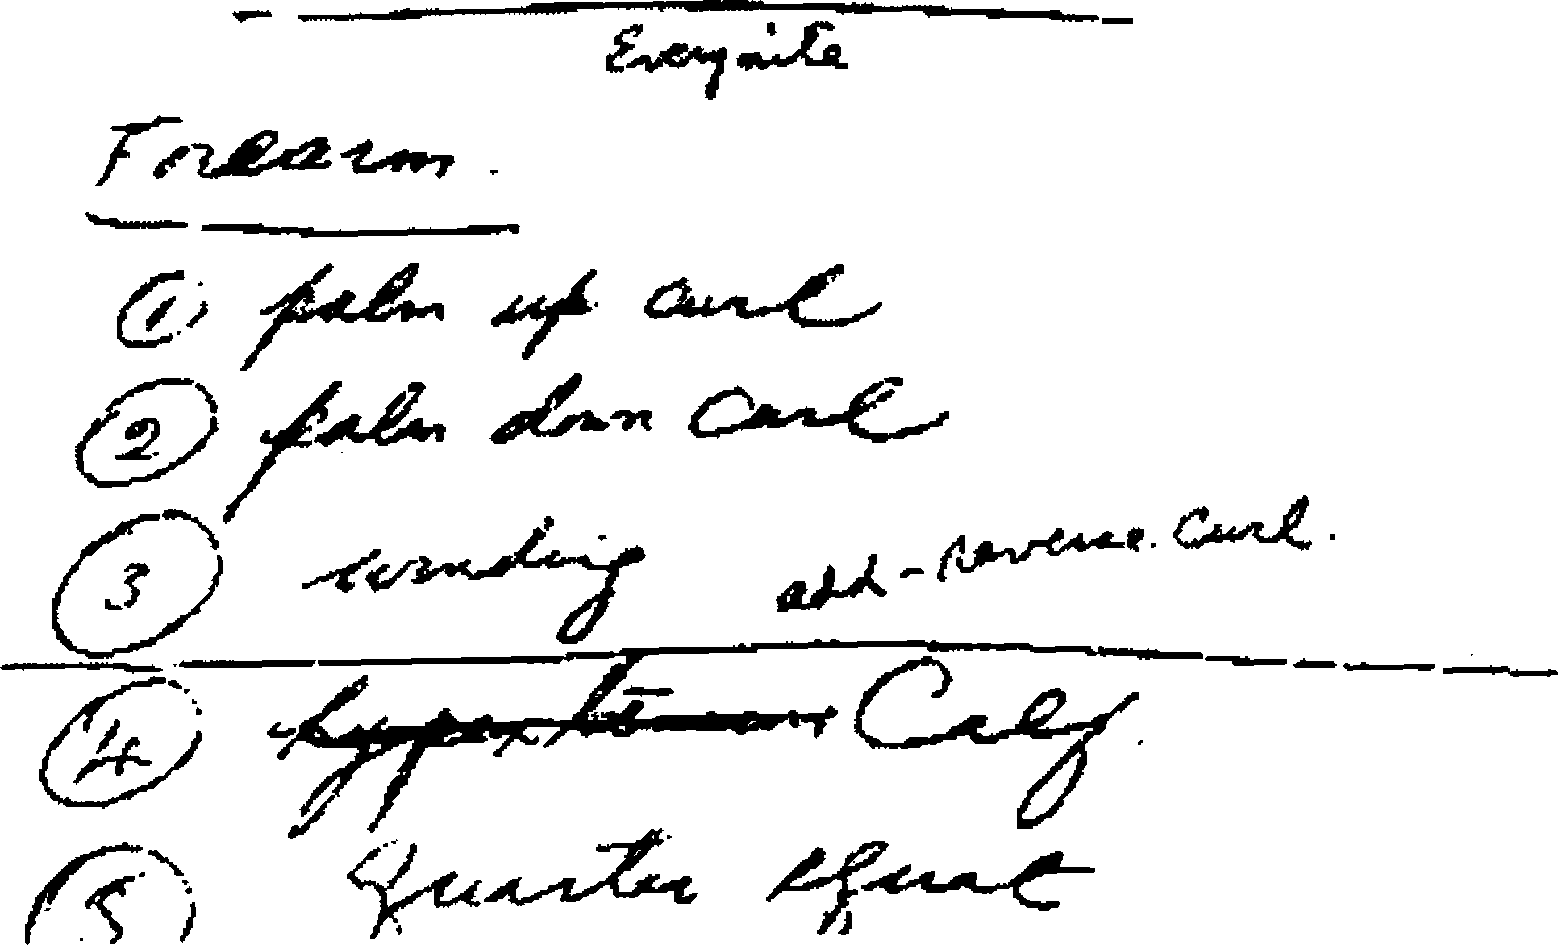 Everynite
Forearm.
① palm up curl
② palm down curl
③ winding add - reverse curl.
④ Calf
⑤ Quarter squat